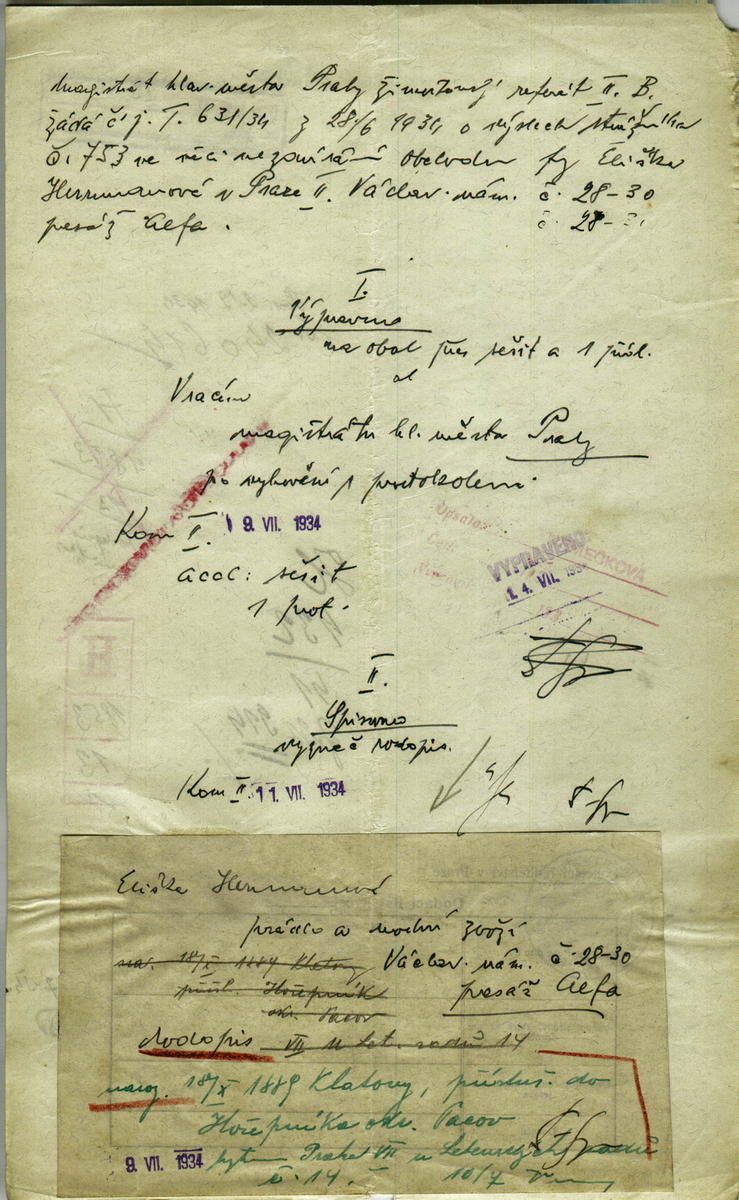 Magistrát hlav. města Prahy živnostenský referát II. B.
žádá č. j. T. 631/34 z 28/6 1934 o výslech strážníka
č. 753 ve věci nezavírání obchodu fy Eliška
Herrmanová v Praze II. Václav. nám. č. 28-30
pasáž Alfa. č. 28-
I.
Výpravna
na obal sešit a 1 
Vracím
magistrátu hl. města Prahy
po vyhovění s protokolem.
Kom II. 9. VII. 1934
accl: sešit
1 prot.
VYPRAVENO
1 4. VII. 193
II.
Spisovna
vyznač rodopis.
Kom II. 11. VII. 1934
Eliška Herrmanová
prádlo a modní zboží
nar. 18/X 1889 Klatovy Václav. nám. č. 28-30
přísl. Hořepník pasáž Alfa
okr. Pacov
Rodopis VII u Let. sadů 14
naroz. 18/X 1889 Klatovy, přísluš. do
Hořepníka okr. Pacov
9. VII. 1934 bytem Praha VII u Letenských sadů
č. 14. 10/7